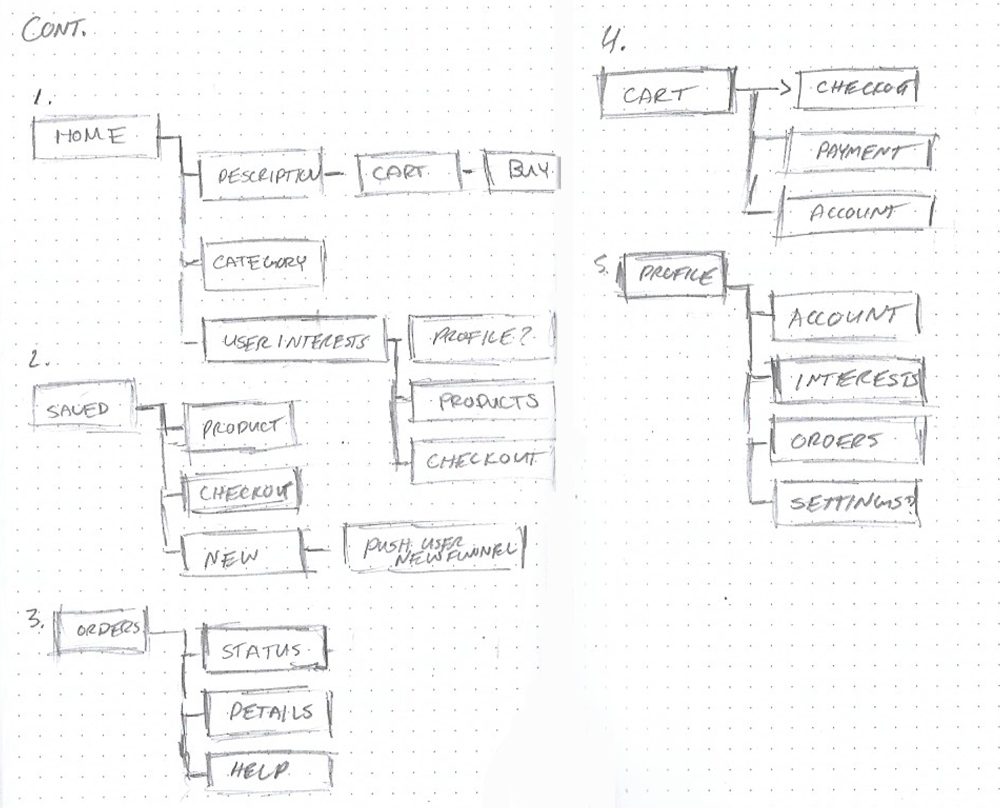 CONT.
1.
HOME
DESCRIPTION
CART
BUY
CATEGORY
USER INTERESTS
PROFILE?
PRODUCTS
CHECKOUT
2.
SAVED
PRODUCT
CHECKOUT
NEW
PUSH USER
NEW FUNNEL
3.
ORDERS
STATUS
DETAILS
HELP
4.
CART
CHECKOUT
PAYMENT
ACCOUNT
5.
PROFILE
ACCOUNT
INTERESTS
ORDERS
SETTINGS?